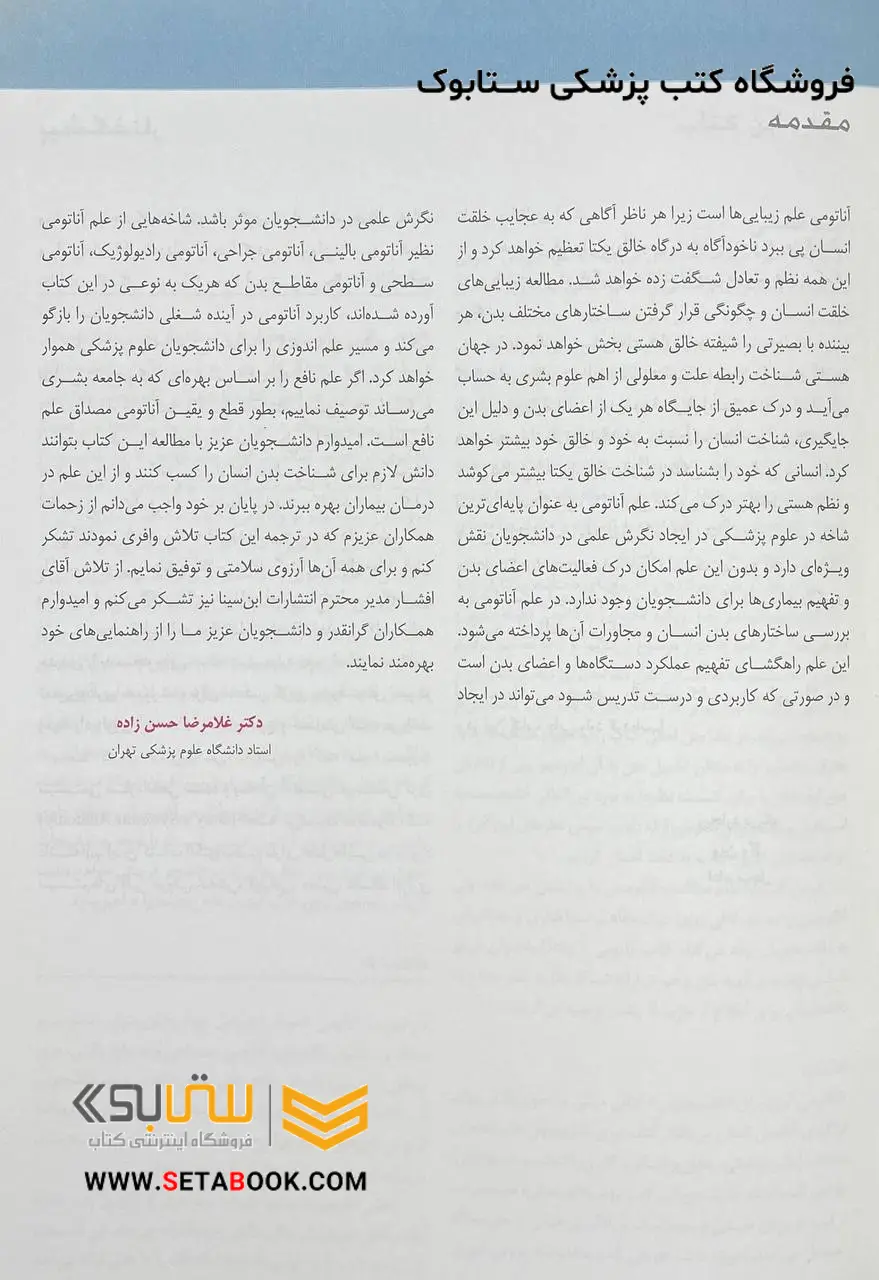 فروشگاه کتب پزشکی ستابوک
مقدمه
آناتومی علم زیبایی‌ها است زیرا هر ناظر آگاهی که به عجایب خلقت
انسان پی ببرد ناخودآگاه به درگاه خالق یکتا تعظیم خواهد کرد و از
این همه نظم و تعادل شگفت زده خواهد شد. مطالعه زیبایی‌های
خلقت انسان و چگونگی قرار گرفتن ساختارهای مختلف بدن، هر
بیننده با بصیرتی را شیفته خالق هستی بخش خواهد نمود. در جهان
هستی شناخت رابطه علت و معلولی از اهم علوم بشری به حساب
می‌آید و درک عمیق از جایگاه هر یک از اعضای بدن و دلیل این
جایگیری، شناخت انسان را نسبت به خود و خالق خود بیشتر خواهد
کرد. انسانی که خود را بشناسد در شناخت خالق یکتا بیشتر می‌کوشد
و نظم هستی را بهتر درک می‌کند. علم آناتومی به عنوان پایه‌ای‌ترین
شاخه در علوم پزشکی در ایجاد نگرش علمی در دانشجویان نقش
ویژه‌ای دارد و بدون این علم امکان درک فعالیت‌های اعضای بدن
و تفهیم بیماری‌ها برای دانشجویان وجود ندارد. در علم آناتومی به
بررسی ساختارهای بدن انسان و مجاورات آن‌ها پرداخته می‌شود.
این علم راهگشای تفهیم عملکرد دستگاه‌ها و اعضای بدن است
و در صورتی که کاربردی و درست تدریس شود می‌تواند در ایجاد
نگرش علمی در دانشجویان موثر باشد. شاخه‌هایی از علم آناتومی
نظیر آناتومی بالینی، آناتومی جراحی، آناتومی رادیولوژیک، آناتومی
سطحی و آناتومی مقاطع بدن که هریک به نوعی در این کتاب
آورده شده‌اند، کاربرد آناتومی در آینده شغلی دانشجویان را بازگو
می‌کند و مسیر علم اندوزی را برای دانشجویان علوم پزشکی هموار
خواهد کرد. اگر علم نافع را بر اساس بهره‌ای که به جامعه بشری
می‌رساند توصیف نماییم، بطور قطع و یقین آناتومی مصداق علم
نافع است. امیدوارم دانشجویان عزیز با مطالعه این کتاب بتوانند
دانش لازم برای شناخت بدن انسان را کسب کنند و از این علم در
درمان بیماران بهره ببرند. در پایان بر خود واجب می‌دانم از زحمات
همکاران عزیزم که در ترجمه این کتاب تلاش وافری نمودند تشکر
کنم و برای همه آن‌ها آرزوی سلامتی و توفیق نمایم. از تلاش آقای
افشار مدیر محترم انتشارات ابن‌سینا نیز تشکر می‌کنم و امیدوارم
همکاران گرانقدر و دانشجویان عزیز ما را از راهنمایی‌های خود
بهره‌مند نمایند.
دکتر غلامرضا حسن زاده
استاد دانشگاه علوم پزشکی تهران
ستابوک
فروشگاه اینترنتی کتاب
WWW.SETABOOK.COM